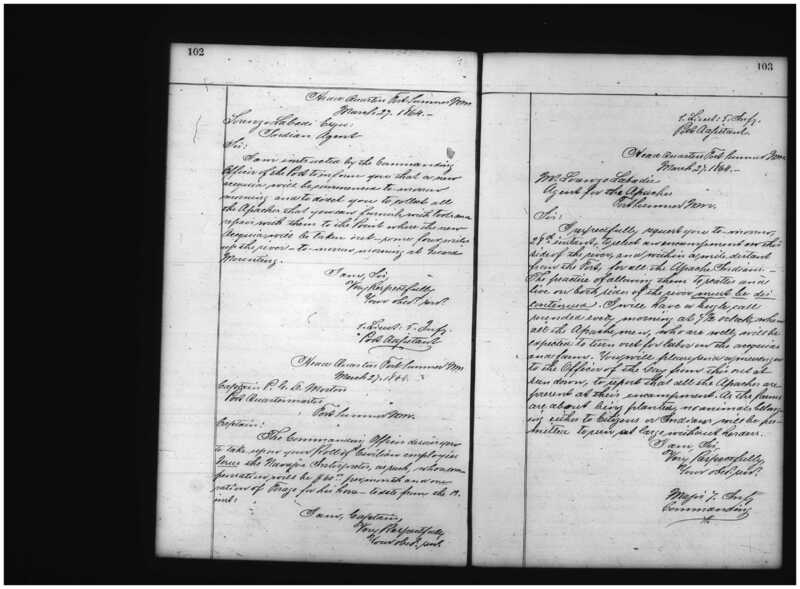 102
Head Quarters Fort Sumner N.M.
March 27. 1864.—
Lorenzo Labadi Esqr:
Indian Agent
Sir:
I am instructed by the Commanding
Officer of the Post to inform you that a new
acequia will be commenced to-morrow
morning and to direct you to collect all
the Apaches that you can furnish with tools and
repair with them to the Point where the new
Acequia will be taken out—some four miles
up the river—to-morrow morning at Guard
Mounting.
I am, Sir,
Very Respectfully
Your obedt. servt.
1. Lieut: 5. Infy.
Post Adjutant
Head Quarters Fort Sumner N.M.
March 27. 1864.
Captain P. G. A. Morton
Post Quartermaster
Fort Sumner N.M.
Captain:
The Commanding Officer desires you
to take up on your Rolls of Civilian employees
the Navajo Interpreter, as such, whose com-
pensation will be $60.00 per month and one
ration of Forage for his horse—to date from the
inst:
I am, Captain,
Very Respectfully
Your obedt. servt.
103
1. Lieut: 5. Infy.
Post Adjutant.
Head Quarters Fort Sumner N.M.
March 27, 1864.—
Mr. Lorenzo Labadie
Agent for the Apaches
Fort Sumner N.M.
Sir:
I respectfully request you to-morrow,
28th instant, to select an encampment on this
side of the river, and within a mile distant
from the Fort, for all the Apache Indians.—
The practice of allowing them to scatter and
live on both sides of the river must be dis-
continued. I will have a bugle call
sounded every morning at 7½ o'clock, when
all the Apache men, who are well, will be
expected to turn out for labor on the acequia
and farm. You will please send a messenger
to the Officer of the Day from this out at
sun down, to report that all the Apaches are
present at their encampment. As the farms
are about being planted, no animals belong-
ing either to Citizens or Indians will be per-
mitted to run at large without herders.
I am, Sir,
Very Respectfully
Your obdt. servt.
Major 7. Infy
Commanding